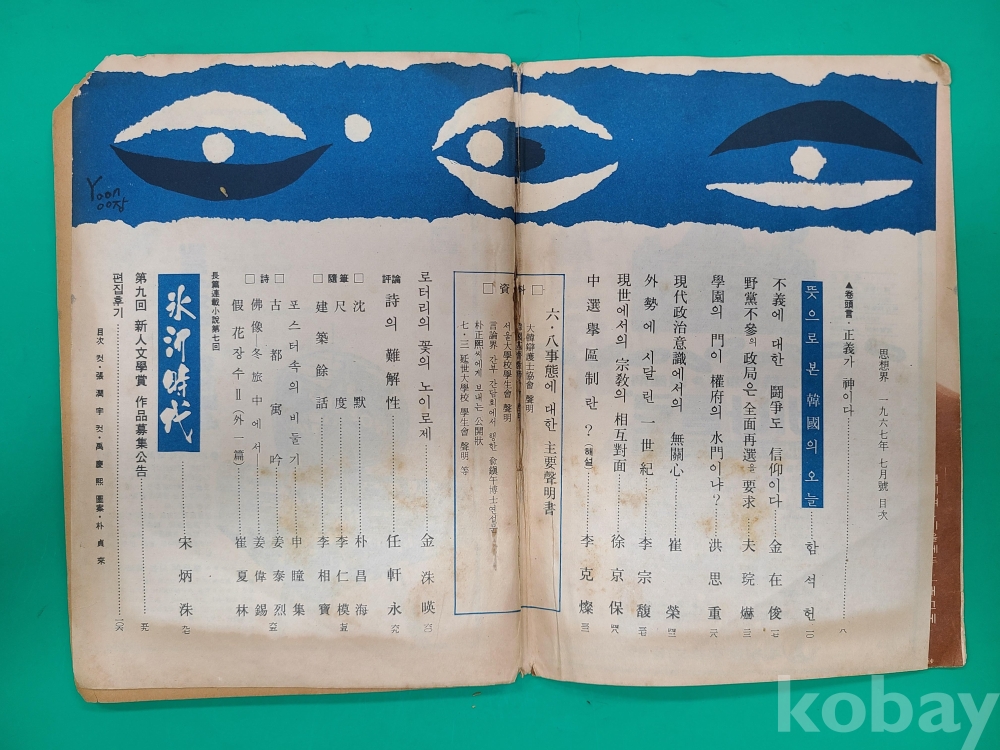 思想界 一九六七年 七月號 目次
▲卷頭言·正義가 神이다 八
뜻으로 본 韓國의 오늘 함석헌 一〇
不義에 대한 鬪爭도 信仰이다 金在俊
野黨不參의 政局은 全面再選을 要求 夫琓爀
學園의 門이 權府의 水門이냐? 洪思重
現代政治意識에서의 無關心 崔榮
外勢에 시달린 一世紀 李宗馥
現世에서의 宗敎의 相互對面 徐京保
中選擧區制란?(해설) 李克燦
□資料□
六·八事態에 대한 主要聲明書
大韓辯護士協會 聲明
서울大學校學生會 聲明
言論界 간부 간담회에서 행한 兪鎭午博士연설
朴正熙씨에게 보내는 公開狀
七·三 延世大學校 學生會 聲明 等
로터리의 꽃의 노이로제 金洙暎
評論 詩의 難解性 任軒永
□隨筆□
沈默 朴昌海
尺度 李仁模
建築餘話 李相寶
□詩□
포스터속의 비둘기 申瞳集
古都寓吟 姜泰烈
佛像—冬旅中에서 姜偉錫
假花장수Ⅱ(外一篇) 崔夏林
長篇連載小說第七回
氷河時代 宋炳洙
第九回 新人文學賞 作品募集公告
편집후기
目次 컷·張潤宇 컷·禹慶熙 圖案·朴貞來
Yoon
kobay